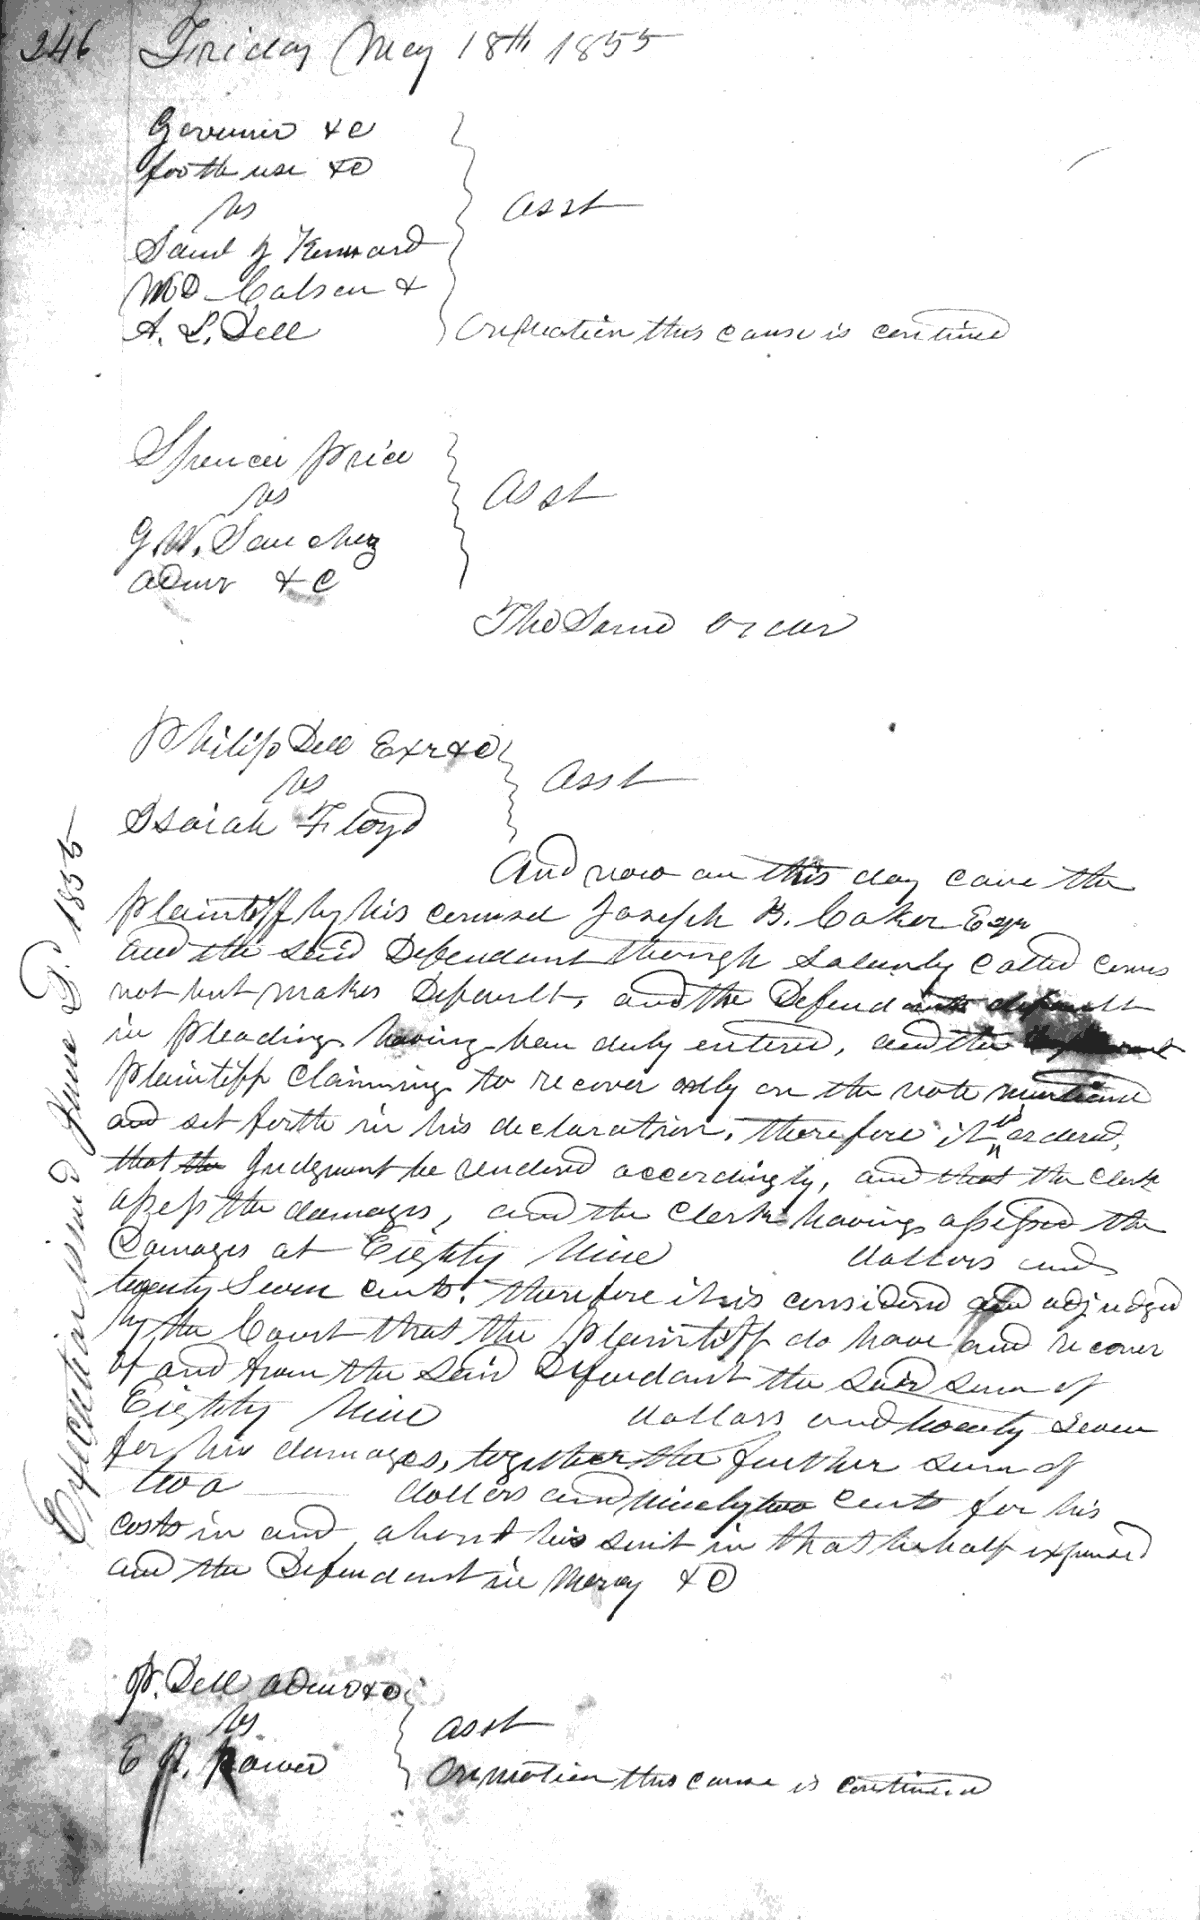 246 Friday May 18th 1855
Governor &c
for the use &c
vs
Saml J Kennard
Wm D Colson &
A. L. Dell
Asst
On motion this cause is continued
Spencer Price
vs
G. W. Sanchez
admr &c
Asst
The Same order
Philip Dell Exr &c
vs
Isaiah Floyd
Asst
And now on this day came the
Plaintiff by his counsel Joseph B. Coker Esqr
and the said Defendant though Solemnly called comes
not but makes Default, and the Defendants default
in pleading having been duly entered, and the
Plaintiff claiming to recover only on the note mentioned
and set forth in his declaration, therefore it is ordered,
that the Judgment be rendered accordingly, and that the clerk
assess the damages, and the Clerk having assessed the
Damages at Eighty Nine dollars and
twenty Seven cents. therefore it is considered and adjudged
by the Court that the Plaintiff do have and recover
of and from the said Defendant the said sum of
Eighty Nine dollars and twenty Seven
for his damages, together the further sum of
two dollars and ninety two cents for his
costs in and about his suit in that behalf expended
and the Defendant in Mercy &c
Execution issued June 5th 1855
P. Dell admr &c
vs
E A. Power
asst
On motion this cause is continued